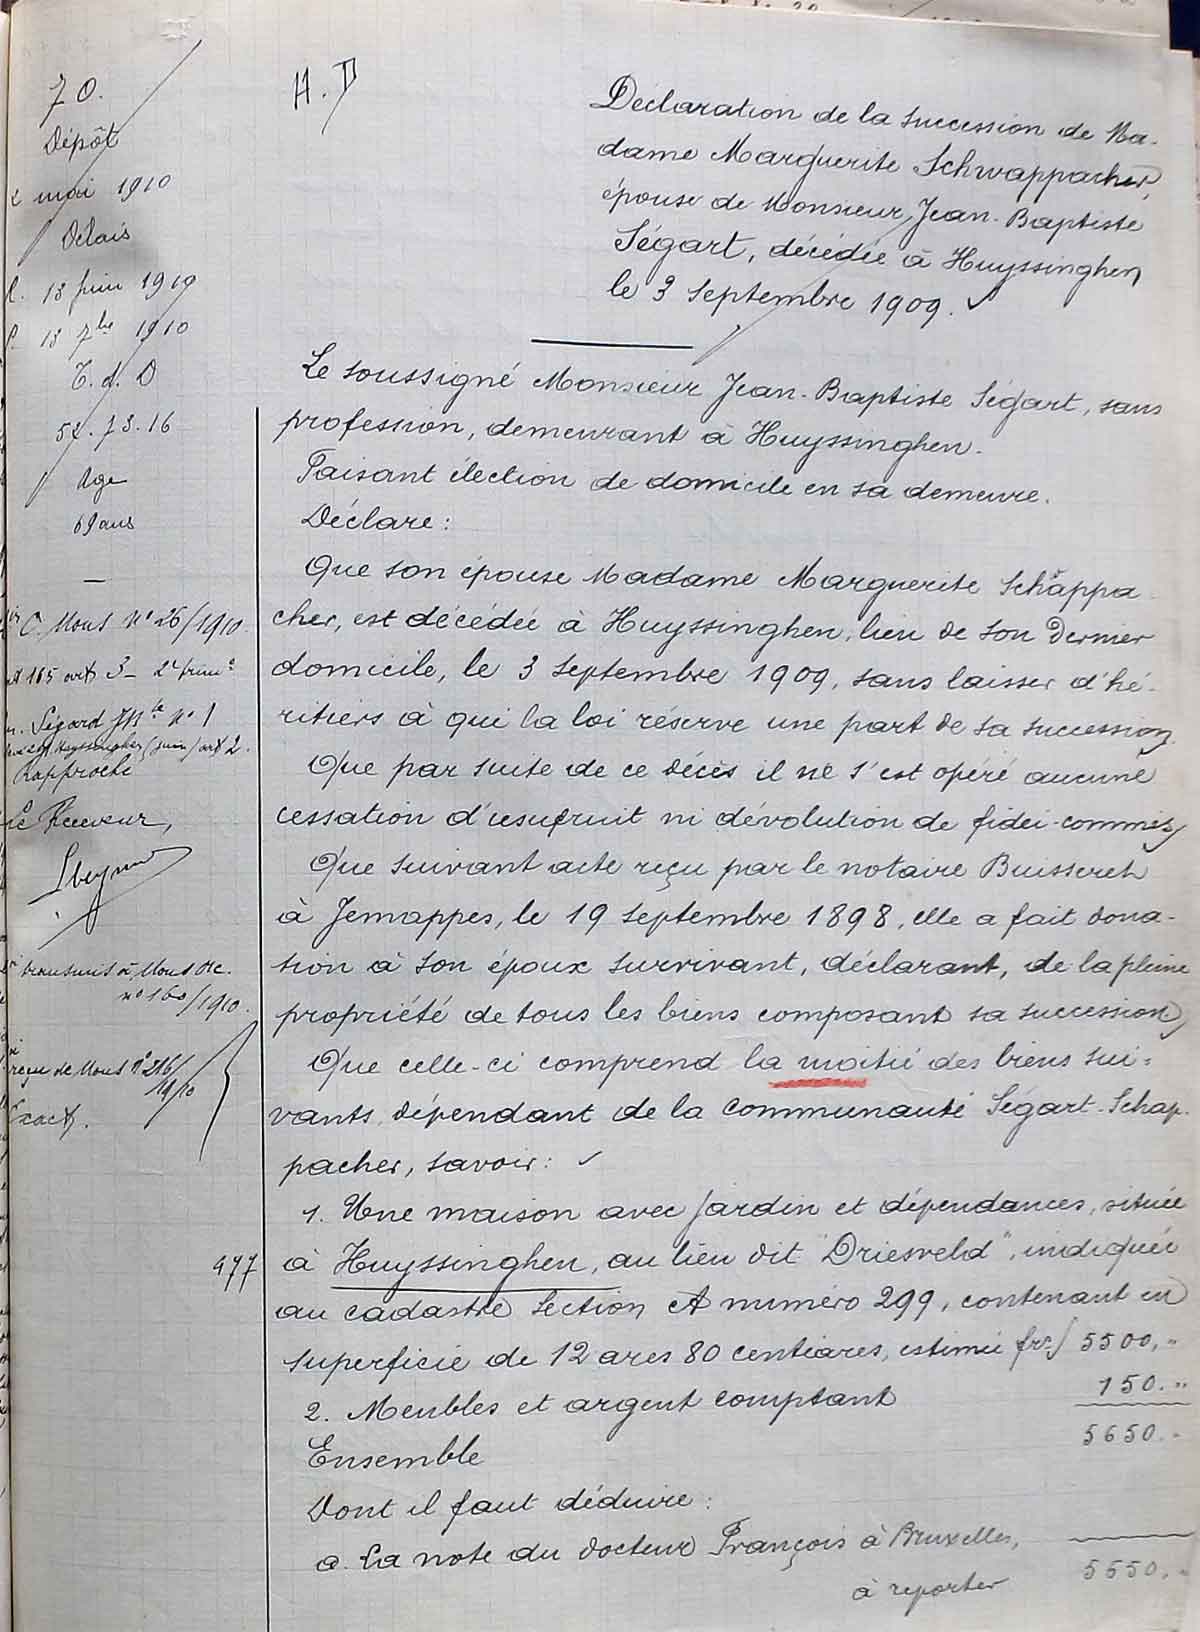 70.
Dépôt
2 mai 1910
Délais
13 juin 1910
13 7bre 1910
T. d. D
52. 73. 16
Age
69 ans
—
C. Mons N° 26/1910
165 art 3
Ségard JBte N° 1
Huyssinghen (juin) art 2.
Rapproché
Le Receveur,
transmis à Mons
n° 160/1910.
reçu de Mons N° 216/
Exact.
477
H. D
Déclaration de la succession de Ma-
dame Marguerite Schwappacher,
épouse de Monsieur Jean-Baptiste
Ségart, décédée à Huyssinghen
le 3 septembre 1909. ✓
Le soussigné Monsieur Jean-Baptiste Ségart, sans
profession, demeurant à Huyssinghen.
Faisant élection de domicile en sa demeure.
Déclare :
Que son épouse Madame Marguerite Schwappa
cher, est décédée à Huyssinghen, lieu de son dernier
domicile, le 3 septembre 1909, sans laisser d'hé-
ritiers à qui la loi réserve une part de sa succession
Que par suite de ce décès il ne s'est opéré aucune
cessation d'usufruit ni dévolution de fidei-commis,
Que suivant acte reçu par le notaire Buisseret
à Jemappes, le 19 septembre 1898, elle a fait dona-
tion à son époux survivant, déclarant, de la pleine
propriété de tous les biens composant sa succession,
Que celle-ci comprend la moitié des biens sui-
vants, dépendant de la communauté Ségart-Schap
pacher, savoir : ✓
1. Une maison avec jardin et dépendances, située
à Huyssinghen, au lieu dit "Driesveld", indiquée
au cadastre section A numéro 299, contenant en
superficie de 12 ares 80 centiares, estimée frs 5500,"
2. Meubles et argent comptant 150."
Ensemble 5650."
Dont il faut déduire :
a. La note du docteur François à Bruxelles,
à reporter 5650,"